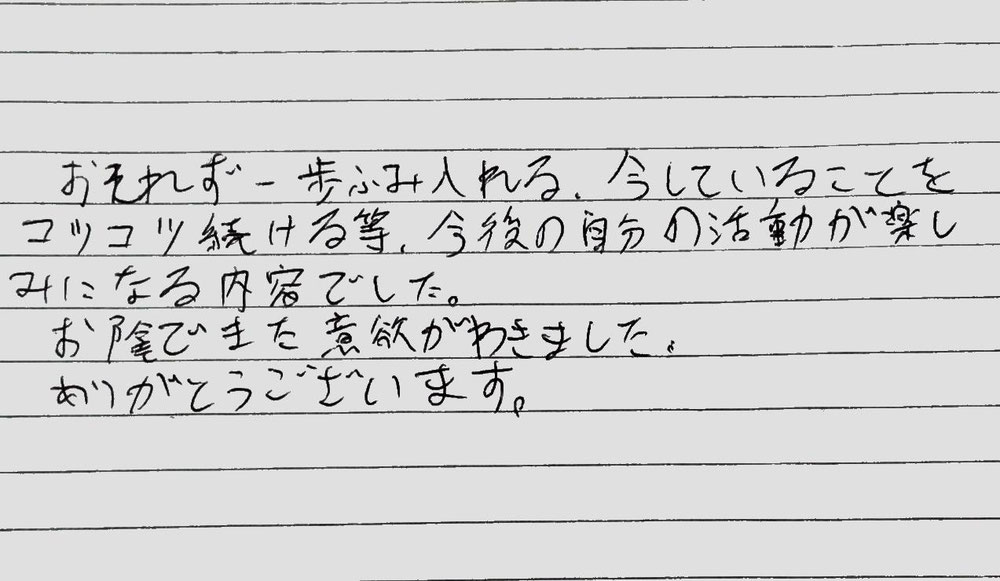 おそれず一歩ふみ入れる、今していることを
コツコツ続ける等、今後の自分の活動が楽し
みになる内容でした。
お陰でまた意欲がわきました。
ありがとうございます。